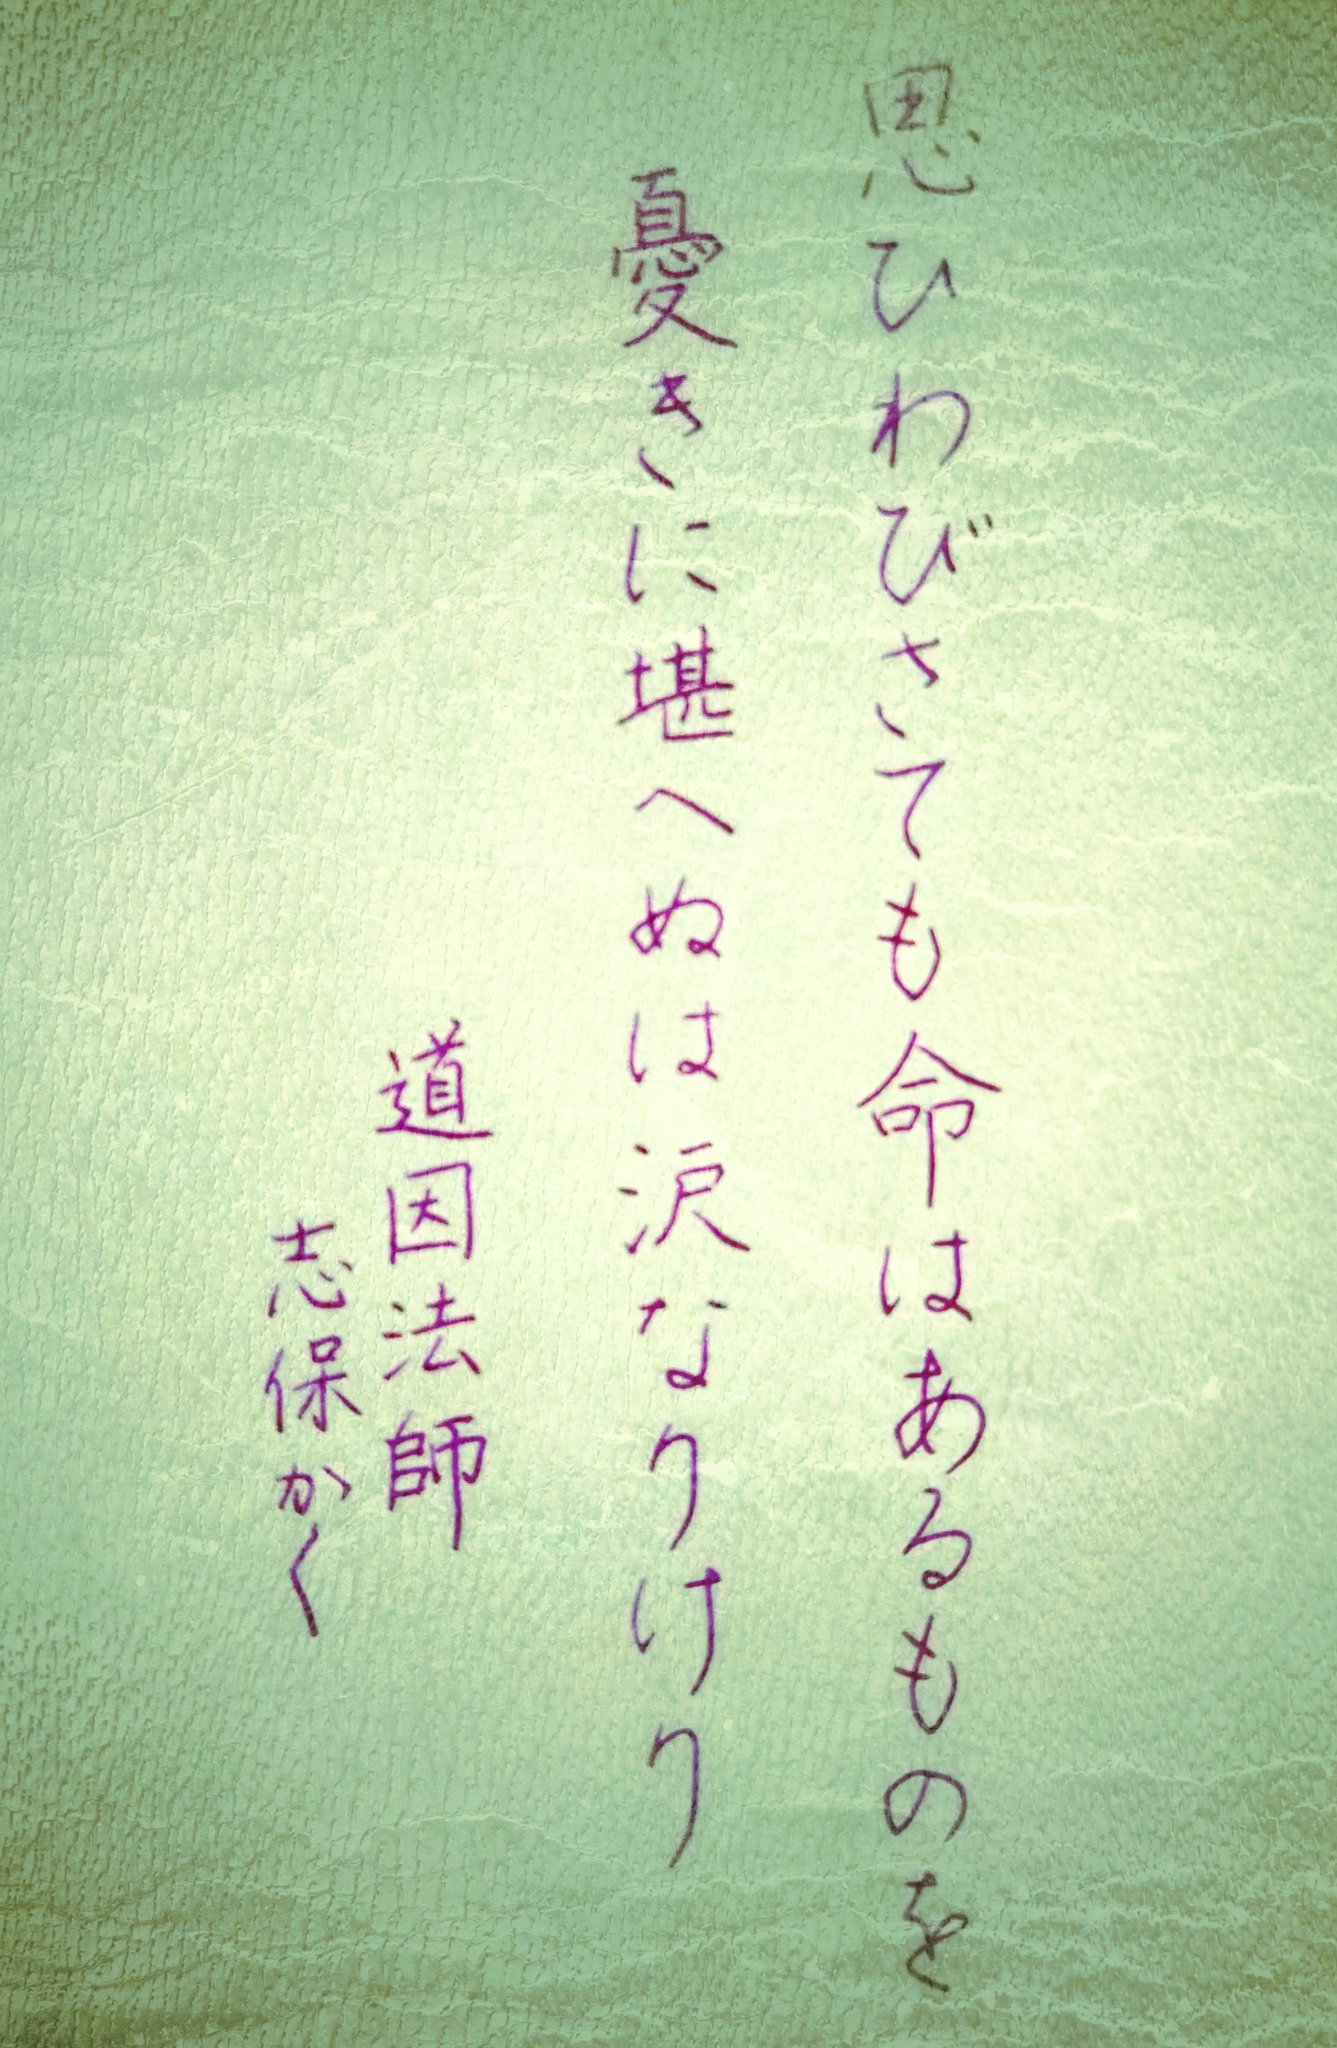 思ひわびさても命はあるものを
憂きに堪へぬは涙なりけり
道因法師
志保かく